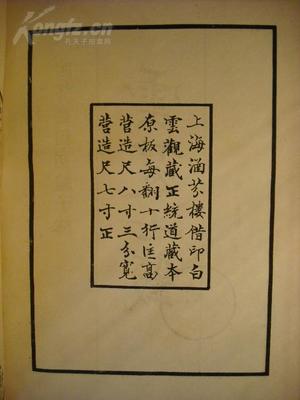 Kongfz.cn
孔夫子拍卖网
上海涵芬樓借印白
雲觀藏正統道藏本
原板每翻十行徃高
營造尺八寸三分寬
營造尺七寸正